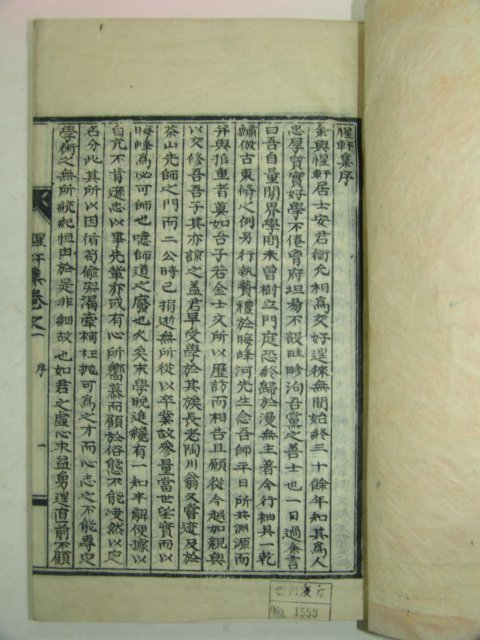 惺軒集序
余與惺軒居士安君衡允相爲交好遑徠無間始終三十餘年知其爲人
忠厚質實好學不倦胷府坦易不設畦畛洵吾黨之善士也一日過余言
曰吾自量聞界學問未曾樹立門庭恐終歸於漫無主著今行袖具一乾
鱐倣古束脩之例另行執贄禮於晦峰河先生念吾師平日所共淵源而
弁與推重者莫如吾子若金士文所以歷訪而相告且顧從今越加親與
以交修吾吾子其亦諒之盖君早受學於其族長老陶川翁又嘗迹及於
茶山先師之門而二公時已捐逝無所從以卒業故叅量當世望實而以
晦峰爲必可師也噫師道之廢也久矣末學晩進纔有一知半解便據以
自亢不肯遜志以事先輩亦或有心所嚮慕而顧於俗態不能凄然以定
名分此其所以因循苟偸架漏牽補枉抛可爲之才而心志之不能專定
學術之無所統紀恒由於是非細故也如君之虛心求益勇遑直前不顧
惺軒集卷之一 序 一
No. 1553